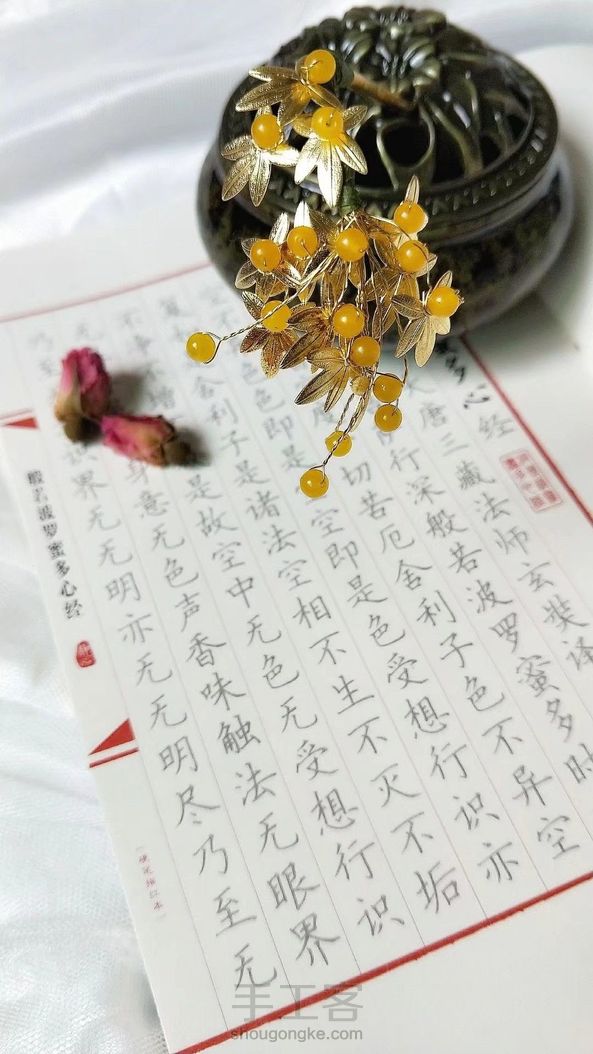 多心经
唐三藏法师玄奘译
行深般若波罗蜜多时
切苦厄舍利子色不异空
色色即是空即是色受想行识亦
舍利子是诸法空相不生不灭不垢
是故空中无色无受想行识
身意无色声香味触法无眼界
界无无明亦无无明尽乃至无
乃至
般若波罗蜜多心经
硬笔描红本
手工客
shougongke.com